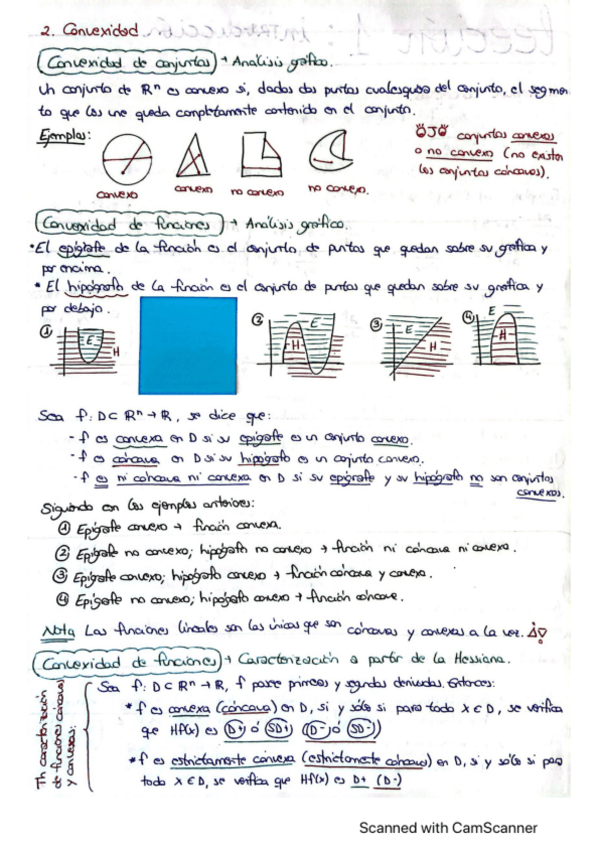 2. Convexidad
Convexidad de conjuntos → Análisis gráfico.
Un conjunto de Rⁿ es convexo si, dados dos puntos cualesquiera del conjunto, el segmen
to que los une queda completamente contenido en el conjunto.
Ejemplos:
convexo
convexo
no convexo
no convexo.
OJO conjuntos convexos
o no convexo (no existen
los conjuntos cóncavos).
Convexidad de funciones → Análisis gráfico.
• El epígrafe de la función es el conjunto de puntos que quedan sobre su gráfica y
por encima.
• El hipógrafo de la función es el conjunto de puntos que quedan sobre su gráfica y
por debajo.
① E H
② E H
③ E H
④ E H
Sea f: D⊂ Rⁿ → R, se dice que:
- f es convexa en D si su epígrafe es un conjunto convexo.
- f es cóncava en D si su hipógrafo es un conjunto convexo.
- f es ni cóncava ni convexa en D si su epígrafe y su hipógrafo no son conjuntos
convexos.
Siguiendo con los ejemplos anteriores:
① Epígrafe convexo → función convexa.
② Epígrafe no convexo; hipógrafo no convexo → función ni cóncava ni convexa.
③ Epígrafe convexo; hipógrafo convexo → función cóncava y convexa.
④ Epígrafe no convexo; hipógrafo convexo → función cóncava.
Nota Las funciones lineales son las únicas que son cóncavas y convexas a la vez.
Convexidad de funciones → Caracterización a partir de la Hessiana.
Th caracterización
de funciones cóncavas
y convexas:
Sea f: D⊂ Rⁿ → R, f posee primeras y segundas derivadas. Entonces:
* f es convexa (cóncava) en D, si y sólo si para todo X∈D, se verifica
que Hf(x) es D+ ó SD+ (D- ó SD-)
* f es estrictamente convexa (estrictamente cóncava) en D, si y sólo si para
todo X∈D, se verifica que Hf(x) es D+ (D-)
Scanned with CamScanner